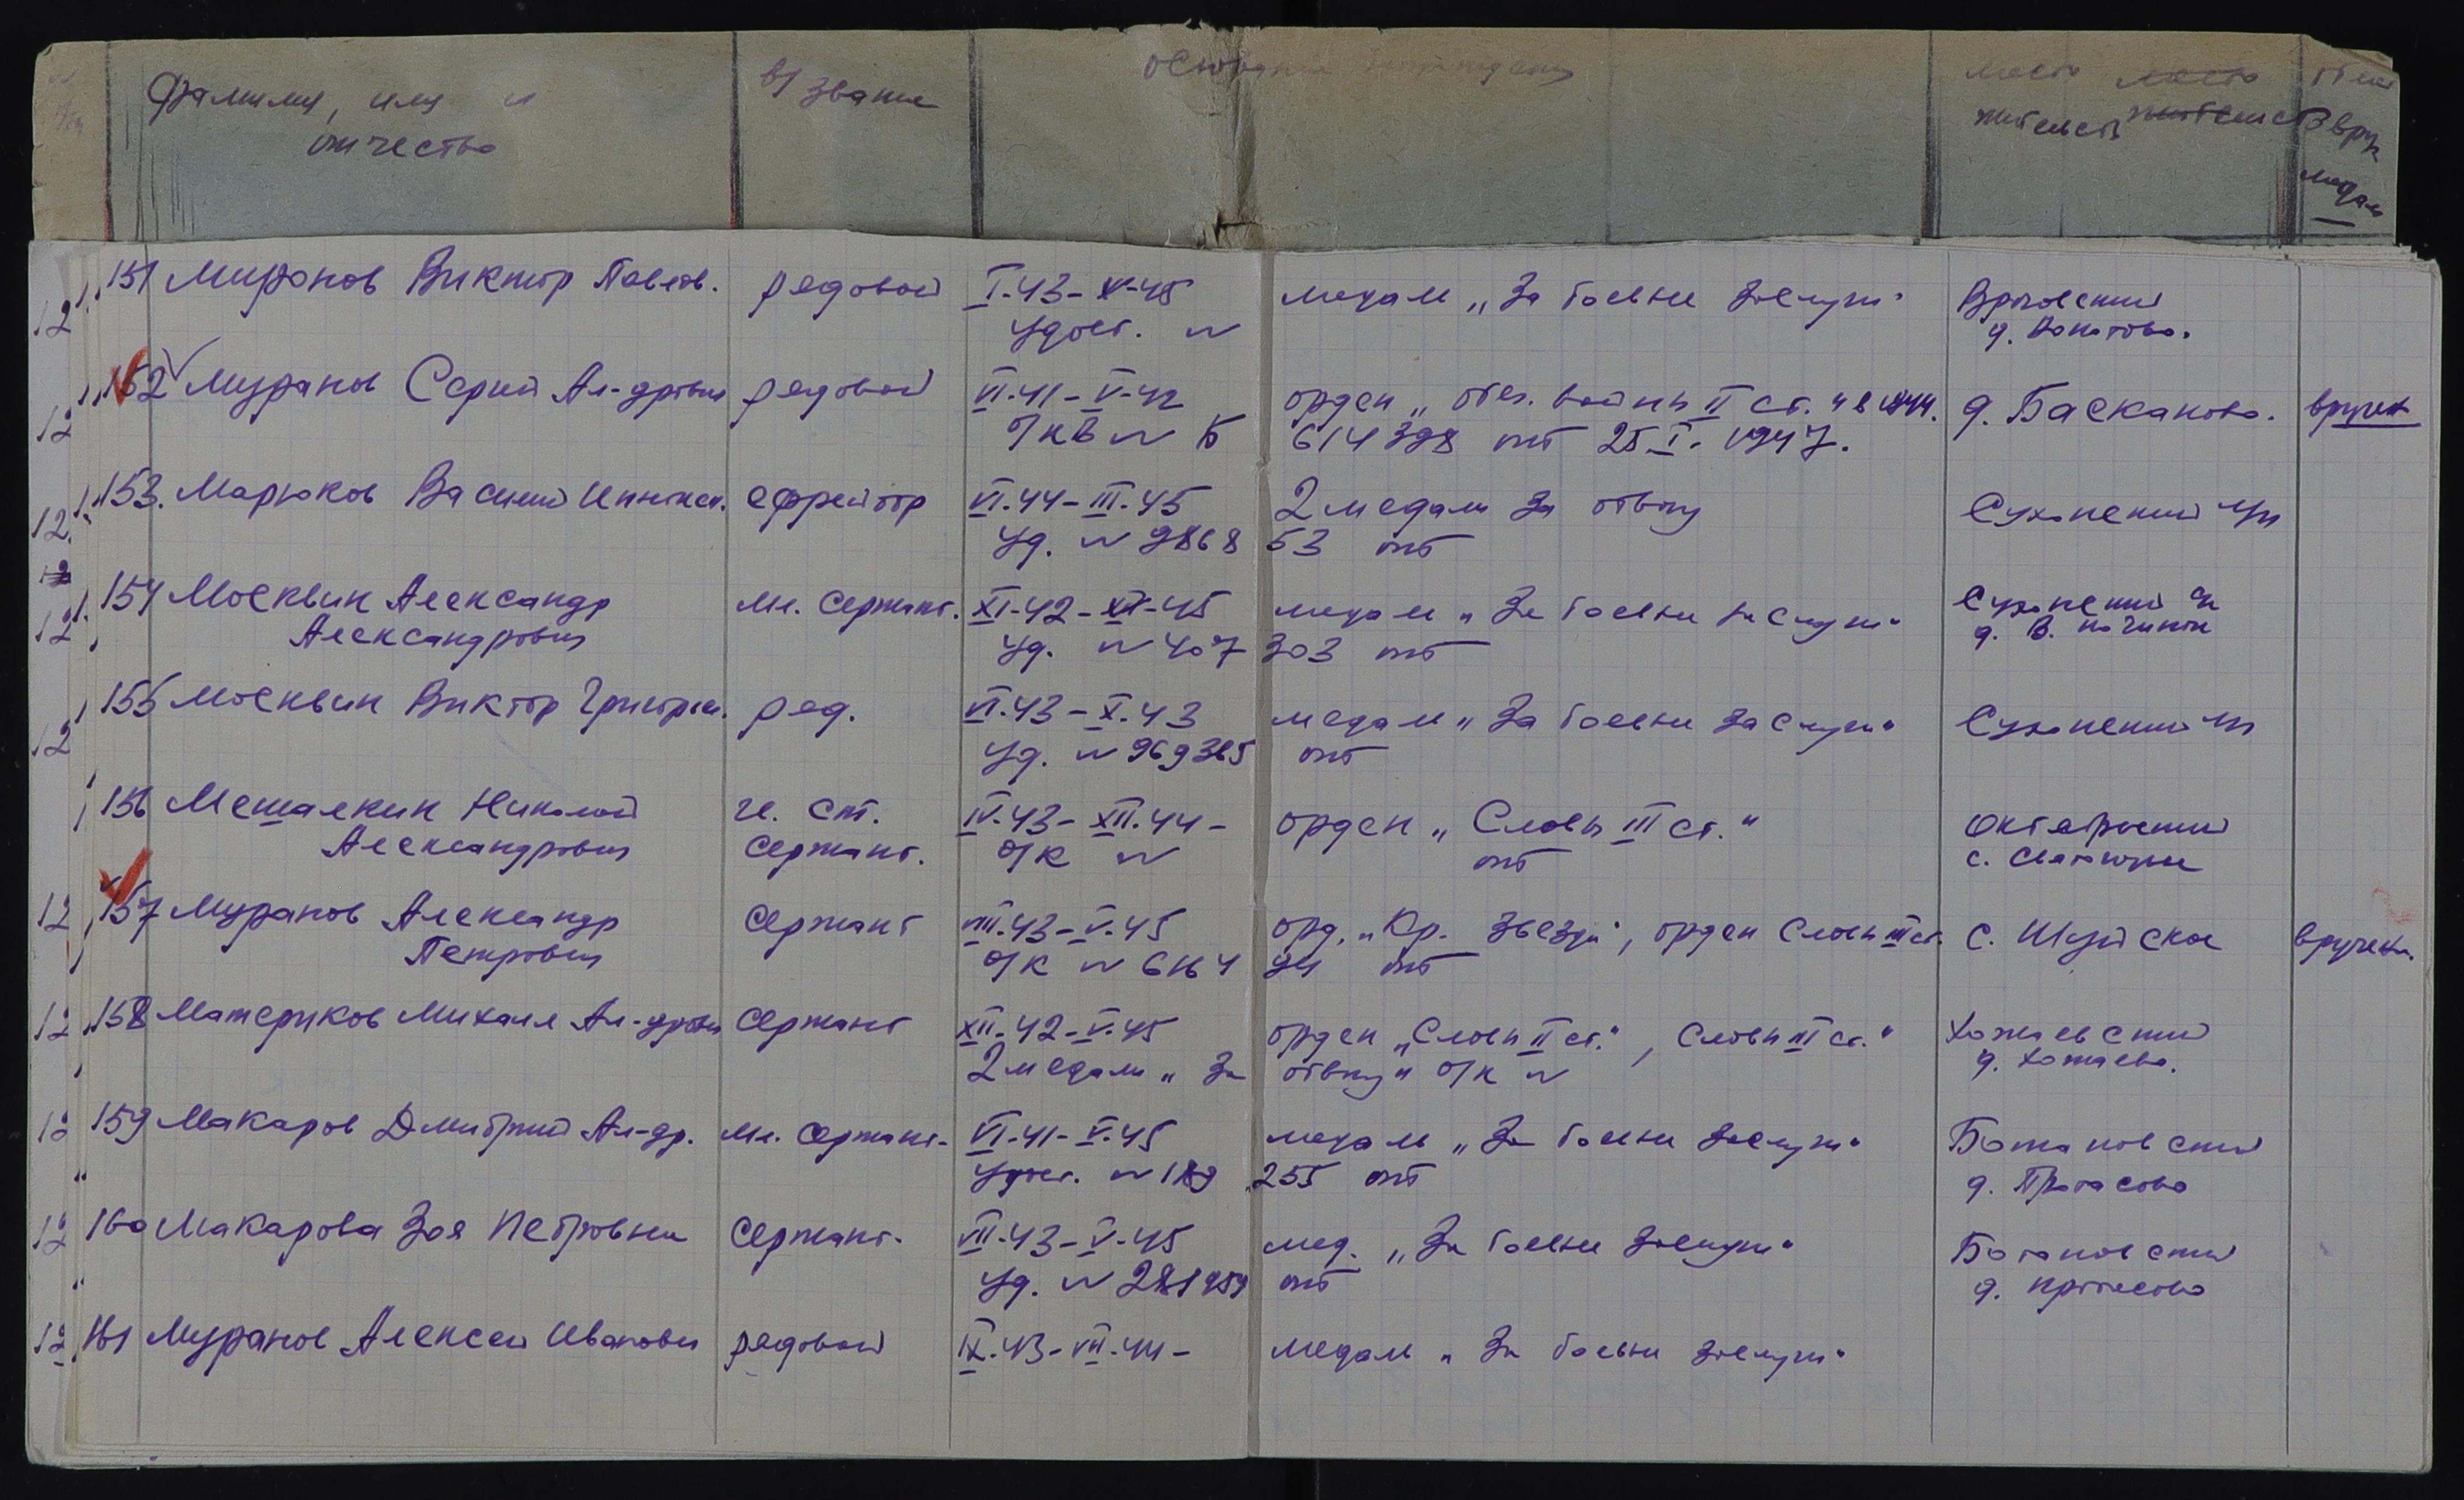 Фамилия, имя и
отчество
в/звание
место
жительств
вруч
медал
151 Миронов Виктор Павлов. рядовой I.43-X-45 медаль „За боевые заслуги"
удост. №
12
152 Муранов Сергей Ал-дрович рядовой VI.41-V.42 орден „Отеч. войны II ст. д. Басканово. вручен
о/кв № Б 614398 от 25.I.1947.
12
153. Марюков Василий ефрейтор VI.44-III.45 2 медали За отвагу Сухонский
уд. № 9868 53 от
12
154 Москвин Александр мл. сержант. XI-42-XII-45 медаль „За боевые заслуги" Сухонский
Александрович уд. № 407 303 от д. В. Починок
12
155 Москвин Виктор Григорьев. ряд. VI.43-X.43 медаль „За боевые заслуги" Сухонский
уд. № 969365 от
12
156 Мешалкин Николай гв. ст. IV.43-XII.44- орден „Славы III ст." Октябрьский
Александрович сержант. о/к № от с.
12 157 Муранов Александр сержант VIII.43-V.45 орд. „Кр. Звезды", орден Славы III ст. с. Шуйское вручены.
Петрович о/к № 6164 94 от
12 158 Материков Михаил Ал-дрович сержант XII-42-V.45 орден „Славы II ст.", Славы III ст." Хожаевский
2 медали „За отвагу" о/к № д. Хожаево.
12 159 Макаров Дмитрий Ал-др. мл. сержант- VI-41-V.45 медаль „За боевые заслуги" Ботановский
удост. № 189 255 от д. Протасово
12 160 Макарова Зоя Петровна сержант. VII-43-V-45 мед. „За боевые заслуги" Ботановский
уд. № 281959 от д. Протасово
12 161 Муранов Алексей Иванович рядовой IX.43-VII.44- медаль „За боевые заслуги"